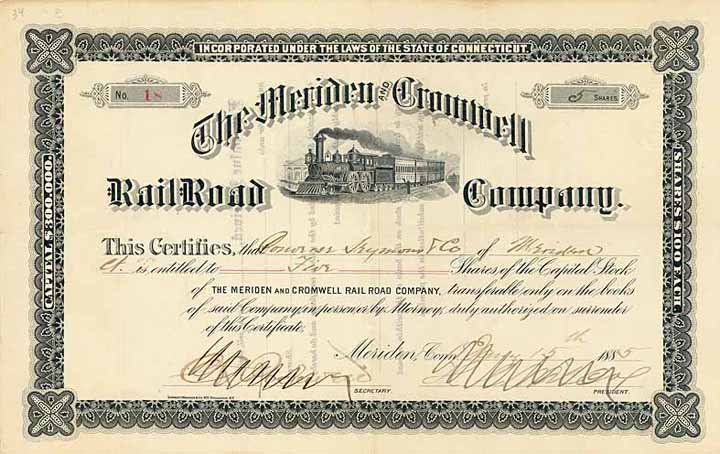 34
INCORPORATED UNDER THE LAWS OF THE STATE OF CONNECTICUT
No. 18
5 SHARES
The Meriden AND Cromwell
RailRoad Company.
CAPITAL $300,000.
SHARES $100 EACH.
This Certifies, that Converse Seymour & Co of Meriden
Ct. is entitled to Five Shares of the Capital Stock
OF THE MERIDEN AND CROMWELL RAIL ROAD COMPANY, transferable only on the books
of said Company, in person or by Attorney, duly authorized on surrender
of this Certificate.
Meriden, Conn. th 1885
SECRETARY. PRESIDENT.